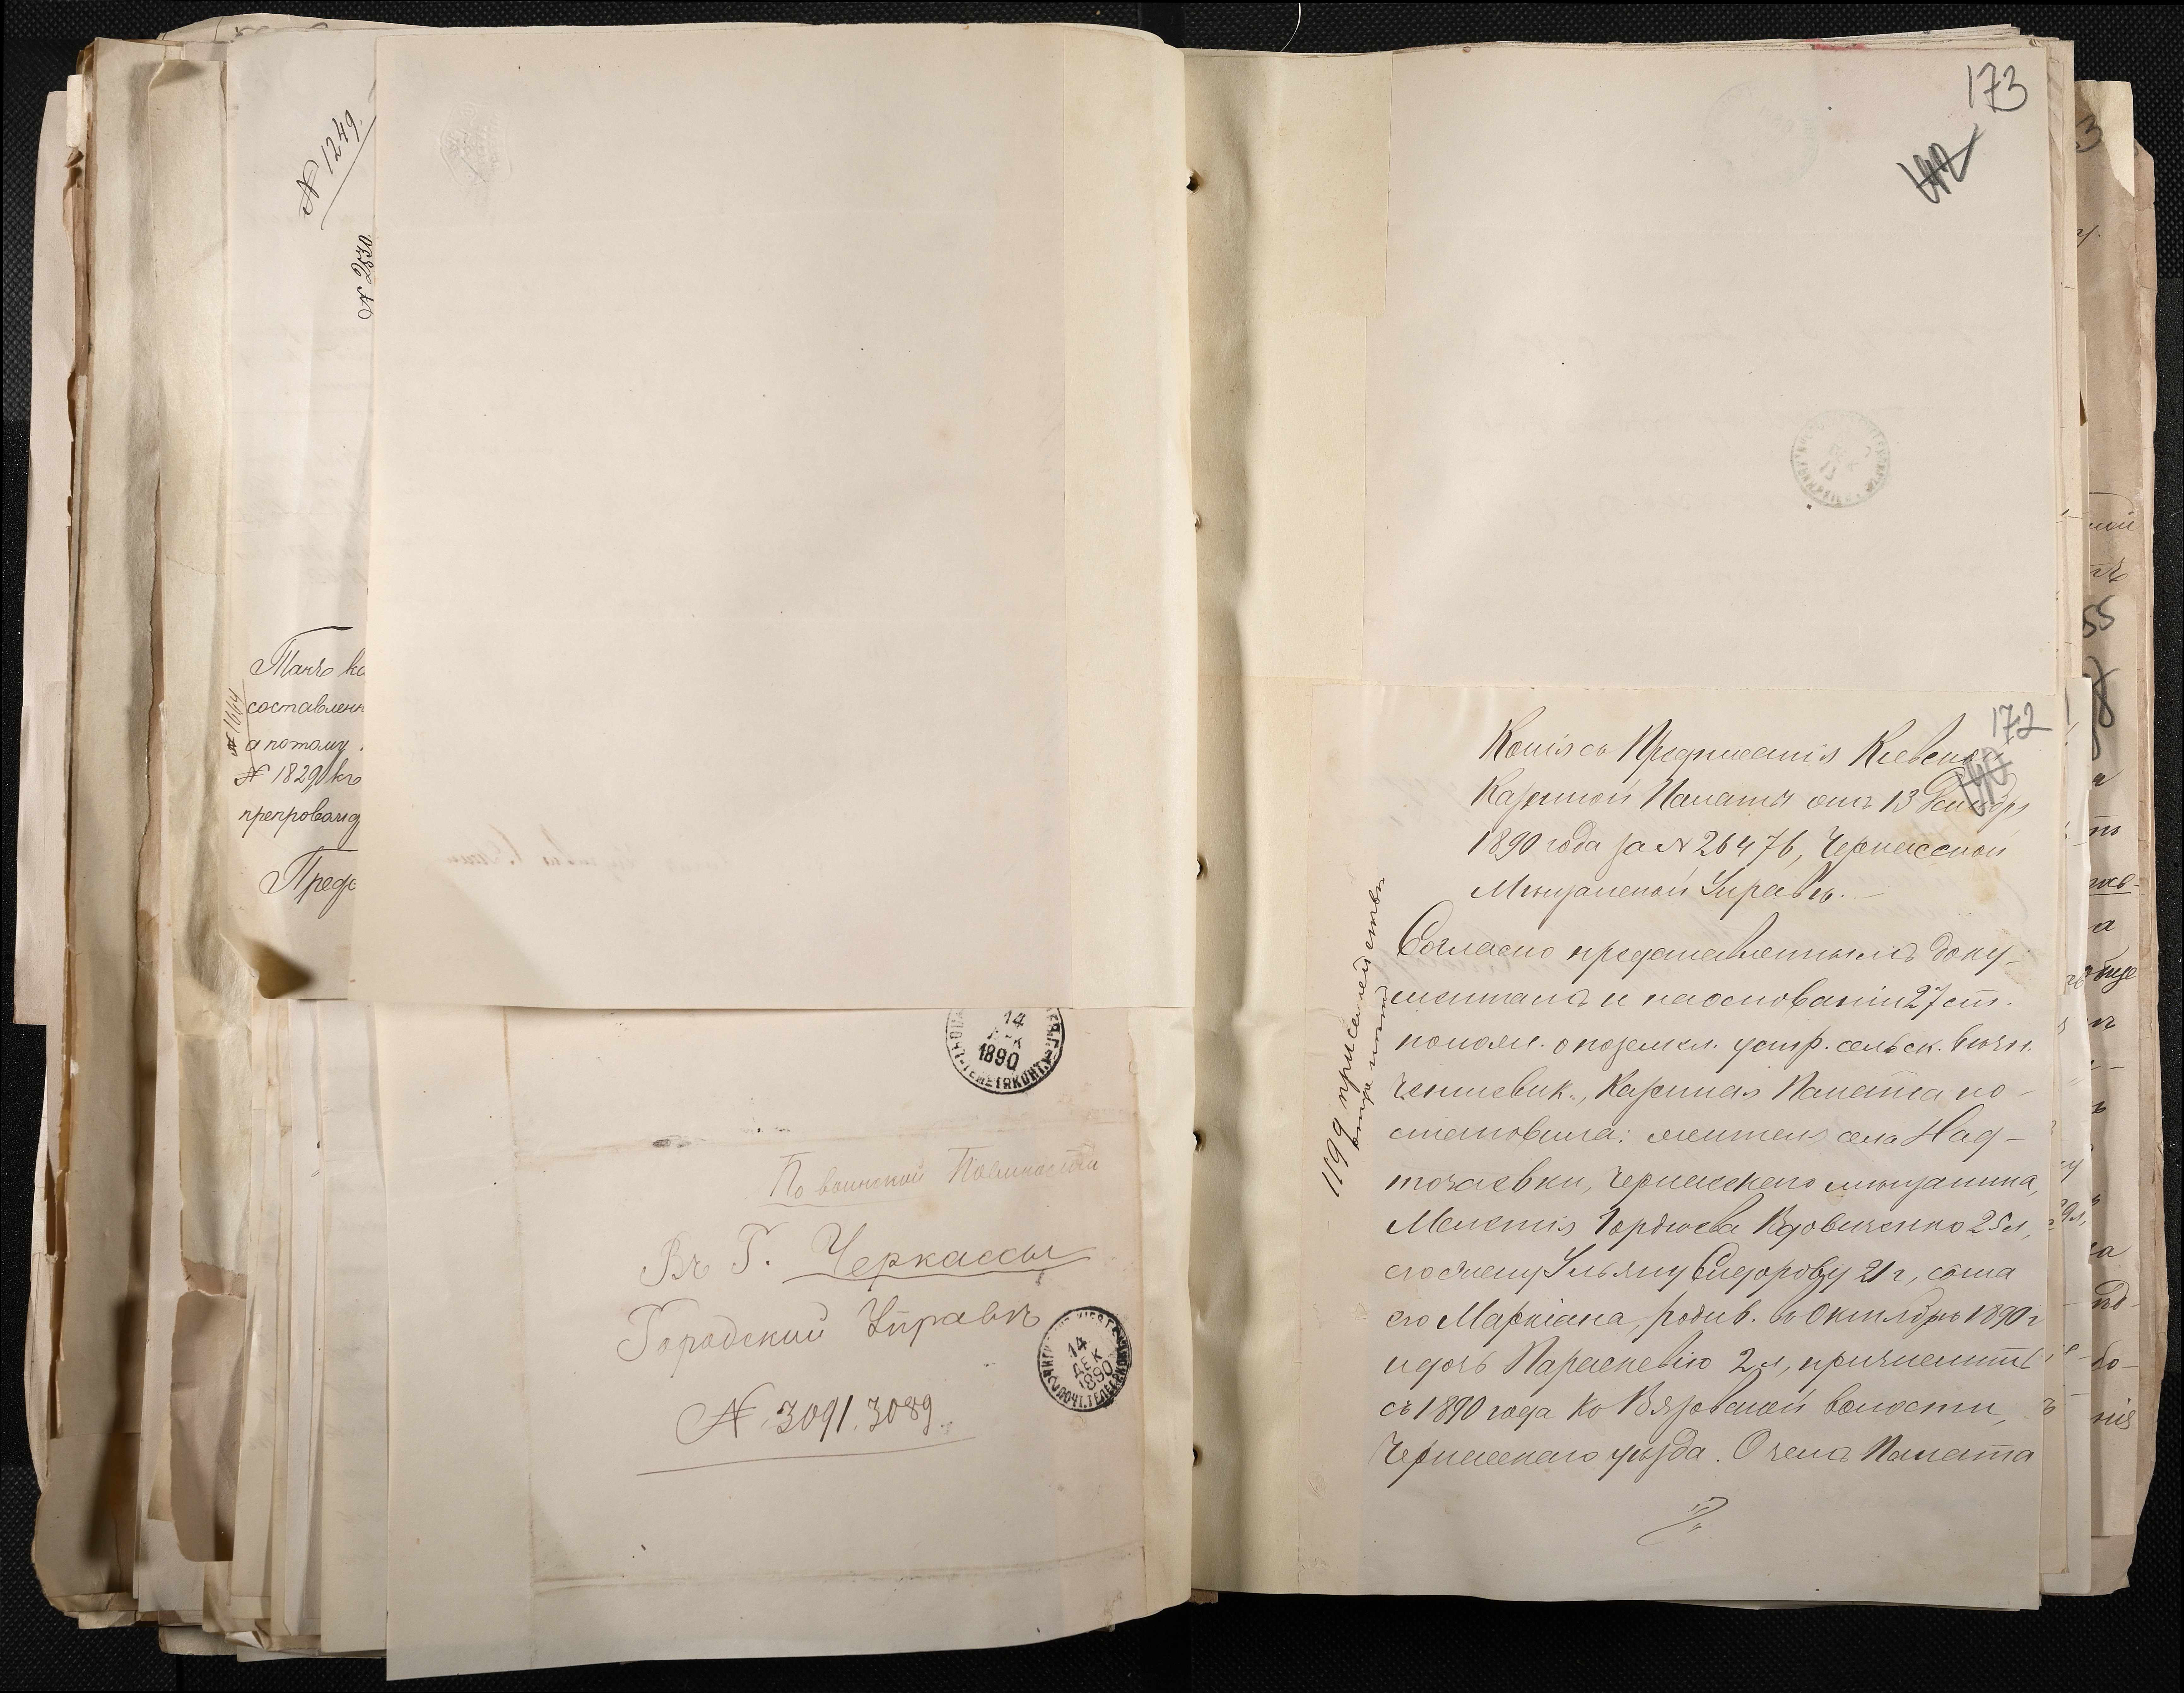 № 1249.
№ 2830.
Такъ ка
составленн
№ 1664
а потому
№ 1829 къ
препровожд
Предс
14
ДЕК
1890
По воинской Повинности
Въ Г. Черкассы
Городский Управѣ
№ 3091. 3089.
14
ДЕК
1890
173
172
Копія съ Предписанія Кіевской
Казенной Палаты отъ 13 Декабря
1890 года за № 26476, Черкасской
Мѣщанской Управѣ. —
Согласно представленнымъ доку-
ментамъ и на основаніи 27 ст.
полож. о поземел. устр. сельск. вѣчн.
чиншевик., Казенная Палата по-
становила: жителя села Над-
точаевки, Черкасскаго мѣщанина,
Мелетія Гордіева Вдовиченко 25 л,
его жену Ульяну Сидорову 21 г, сына
его Маркіана, родив. въ Октябрѣ 1890 г
и дочь Параскевію 2 л, причислить
съ 1890 года къ Вязовской волости,
Черкасскаго уѣзда. О чемъ Палата
1199